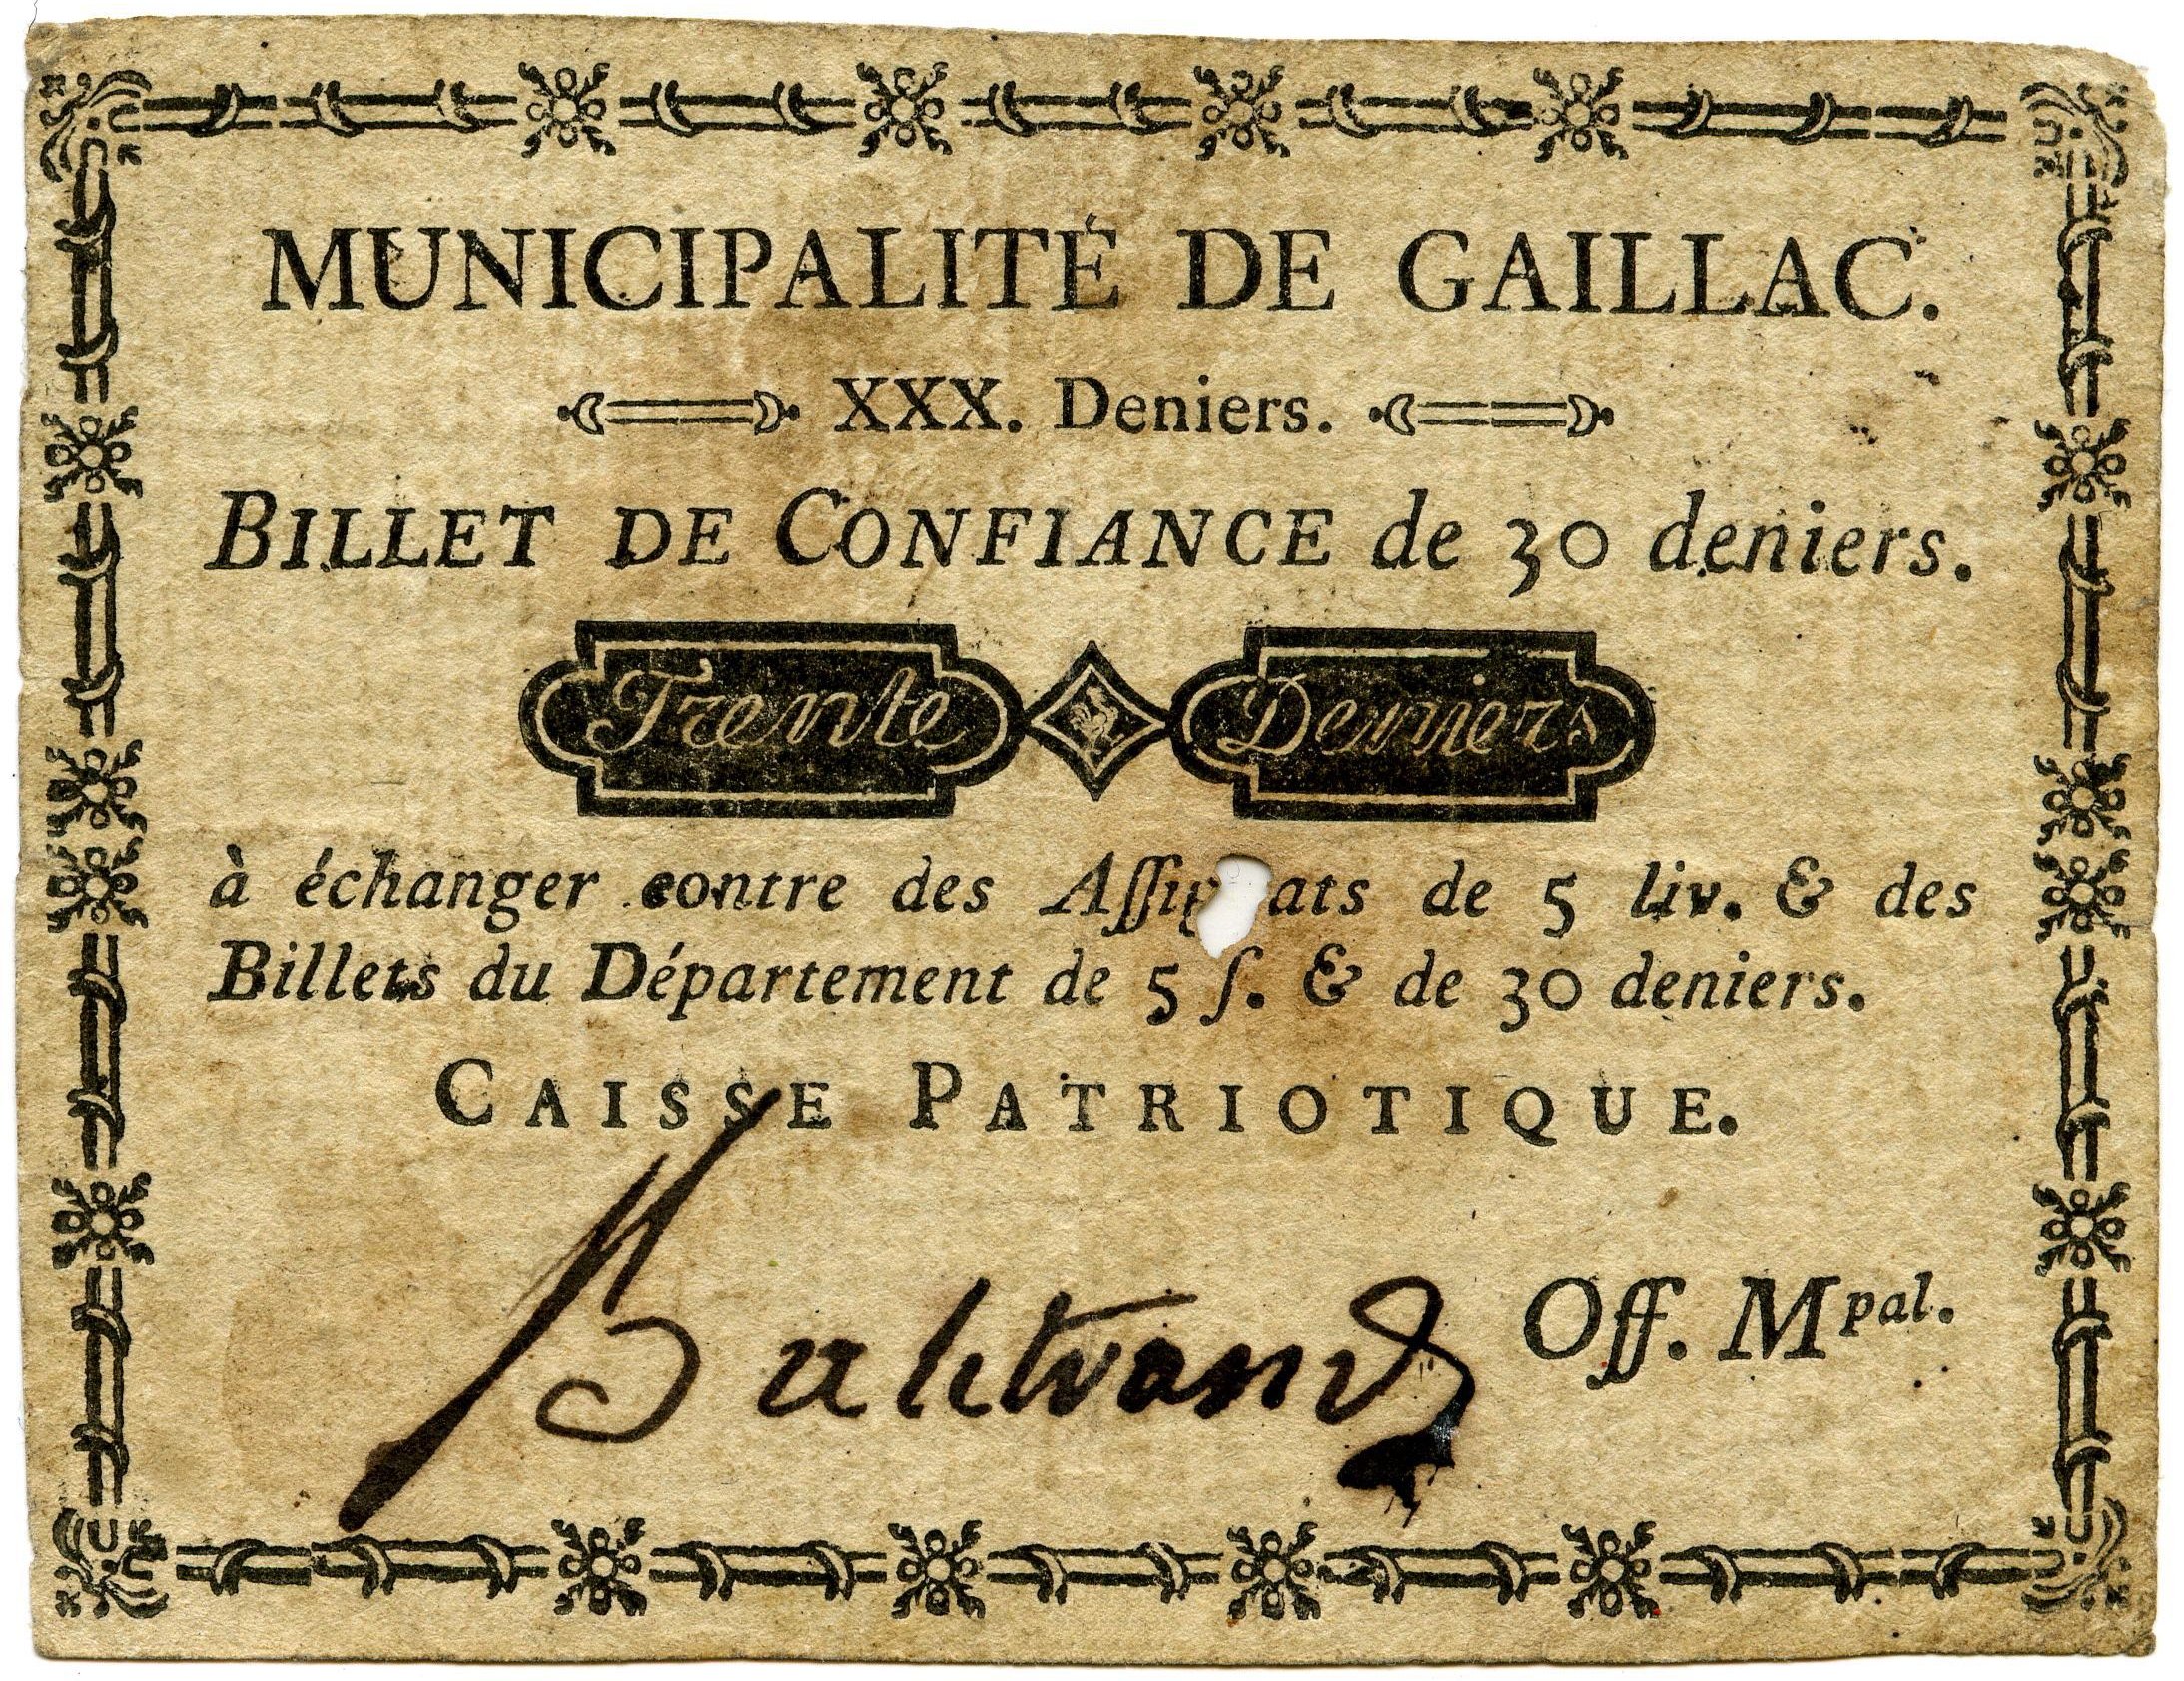 MUNICIPALITÉ DE GAILLAC.
XXX. Deniers.
BILLET DE CONFIANCE de 30 deniers.
Trente Deniers
à échanger contre des Aſſig ats de 5 liv. & des
Billets du Département de 5 ſ. & de 30 deniers.
CAISSE PATRIOTIQUE.
Off. Mpal.